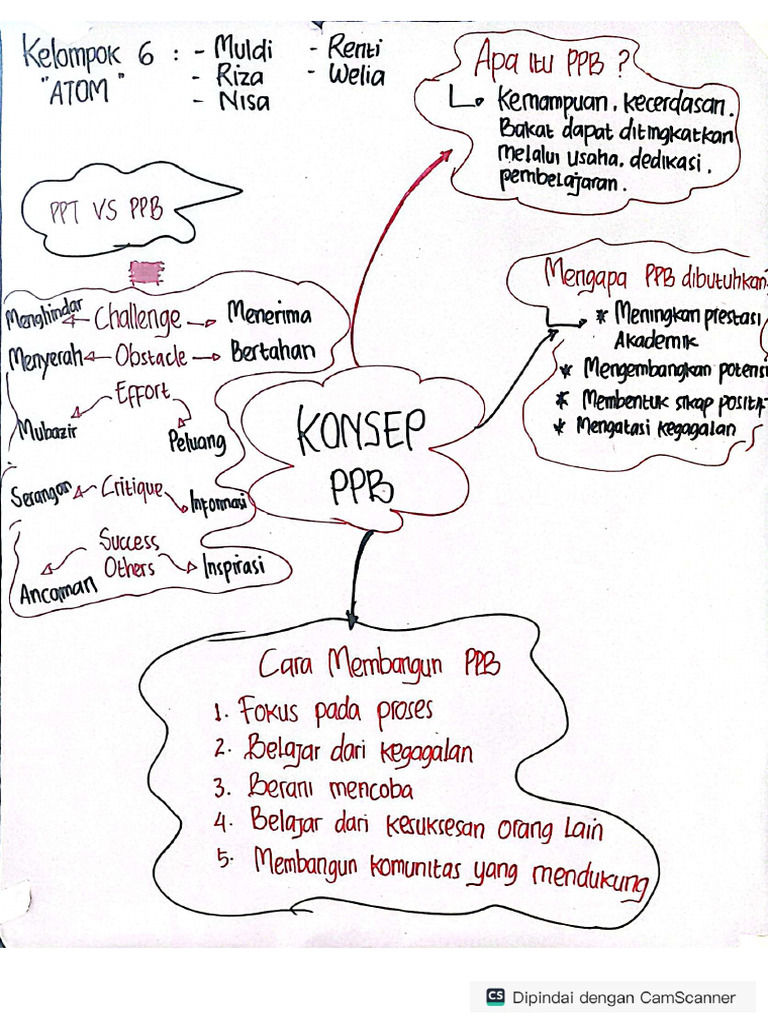 Kelompok 6 : - Muldi - Renti
"ATOM" - Riza - Welia
- Nisa
Apa itu PPB ?
Kemampuan, kecerdasan.
Bakat dapat ditingkatkan
melalui usaha, dedikasi,
pembelajaran.
PPT VS PPB
Mengapa PPB dibutuhkan
* Meningkan prestasi
Akademik
* Mengembangkan potensi
* Membentuk sikap positif
* Mengatasi kegagalan
Menghindar Challenge Menerima
Menyerah Obstacle Bertahan
Effort
Mubazir Peluang
Serangan Critique Informasi
Success
Others
Ancaman Inspirasi
KONSEP
PPB
Cara Membangun PPB
1. Fokus pada proses
2. Belajar dari kegagalan
3. Berani mencoba
4. Belajar dari kesuksesan orang Lain
5. Membangun komunitas yang mendukung
CS Dipindai dengan CamScanner